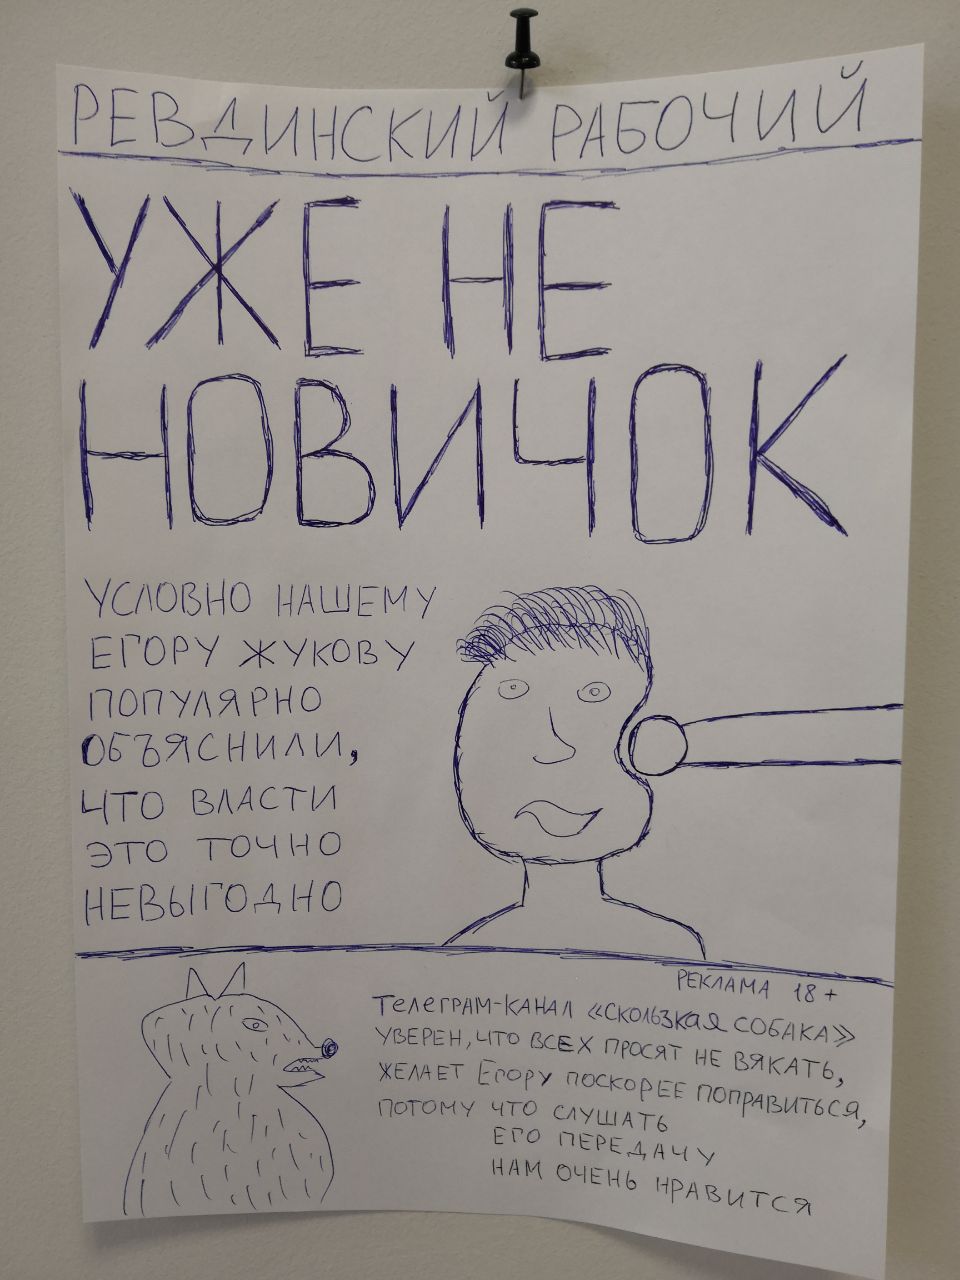 РЕВДИНСКИЙ РАБОЧИЙ
УЖЕ НЕ
НОВИЧОК
УСЛОВНО НАШЕМУ
ЕГОРУ ЖУКОВУ
ПОПУЛЯРНО
ОБЪЯСНИЛИ,
ЧТО ВЛАСТИ
ЭТО ТОЧНО
НЕВЫГОДНО
РЕКЛАМА 18+
ТЕЛЕГРАМ-КАНАЛ «СКОЛЬЗКАЯ СОБАКА»
УВЕРЕН, ЧТО ВСЕХ ПРОСЯТ НЕ ВЯКАТЬ,
ЖЕЛАЕТ ЕГОРУ ПОСКОРЕЕ ПОПРАВИТЬСЯ,
ПОТОМУ ЧТО СЛУШАТЬ
ЕГО ПЕРЕДАЧУ
НАМ ОЧЕНЬ НРАВИТСЯ